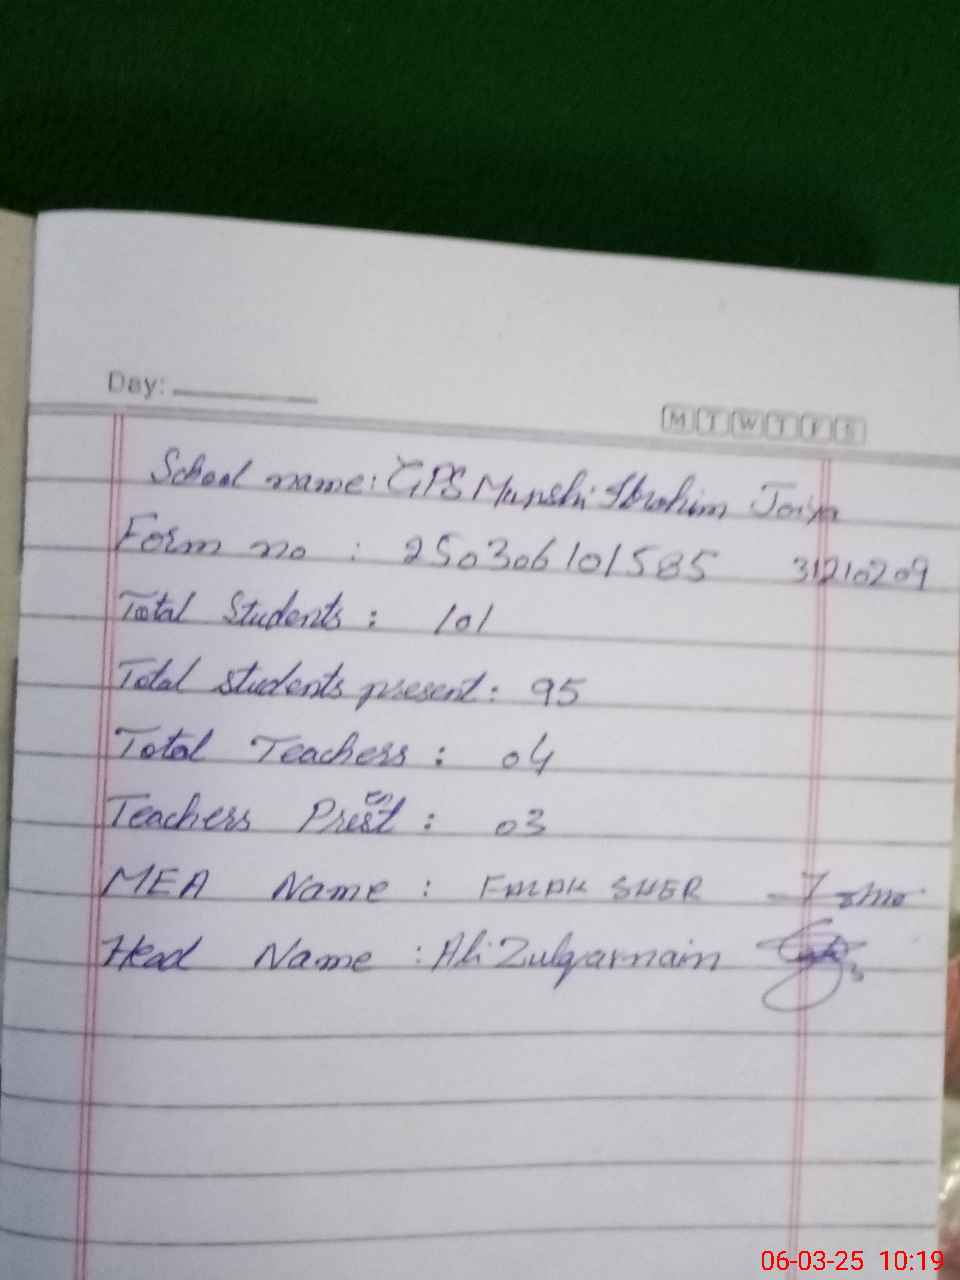 Day:
M T W T F S
School name: GPS Munshi Ibrahim Joiya
Form no : 250306101585 31210209
Total Students : 101
Total students present : 95
Total Teachers : 04
Teachers Present : 03
MEA Name : SHER
Head Name : Ali Zulqarnain
06-03-25 10:19